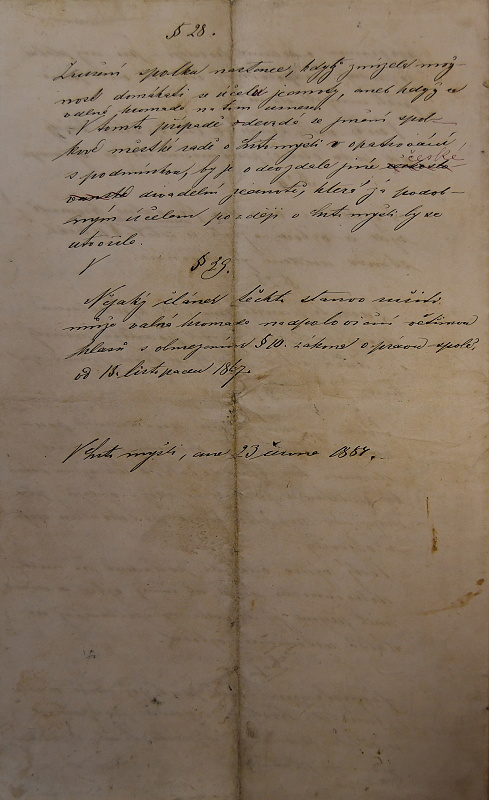 § 28.
Zrušení spolku nastane, když zmizela mož-
nost domáhati se účelu jednoty, aneb když se
valná hromada na tom usnese.
V tomto případě odevzdá se jmění spol-
kové městské radě v opatrování
s podmínkou, by je odevzdala jiné české
divadelní jednotě, která za podob-
ným účelem později v by se
utvořila.
§ 29.
Nějaký článek těchto stanov
může valná hromada nadpoloviční většinou
hlasů s obmezením § 10. zákona o právu spolč.
od 15. listopadu 1867.
dne 23 června 1887.